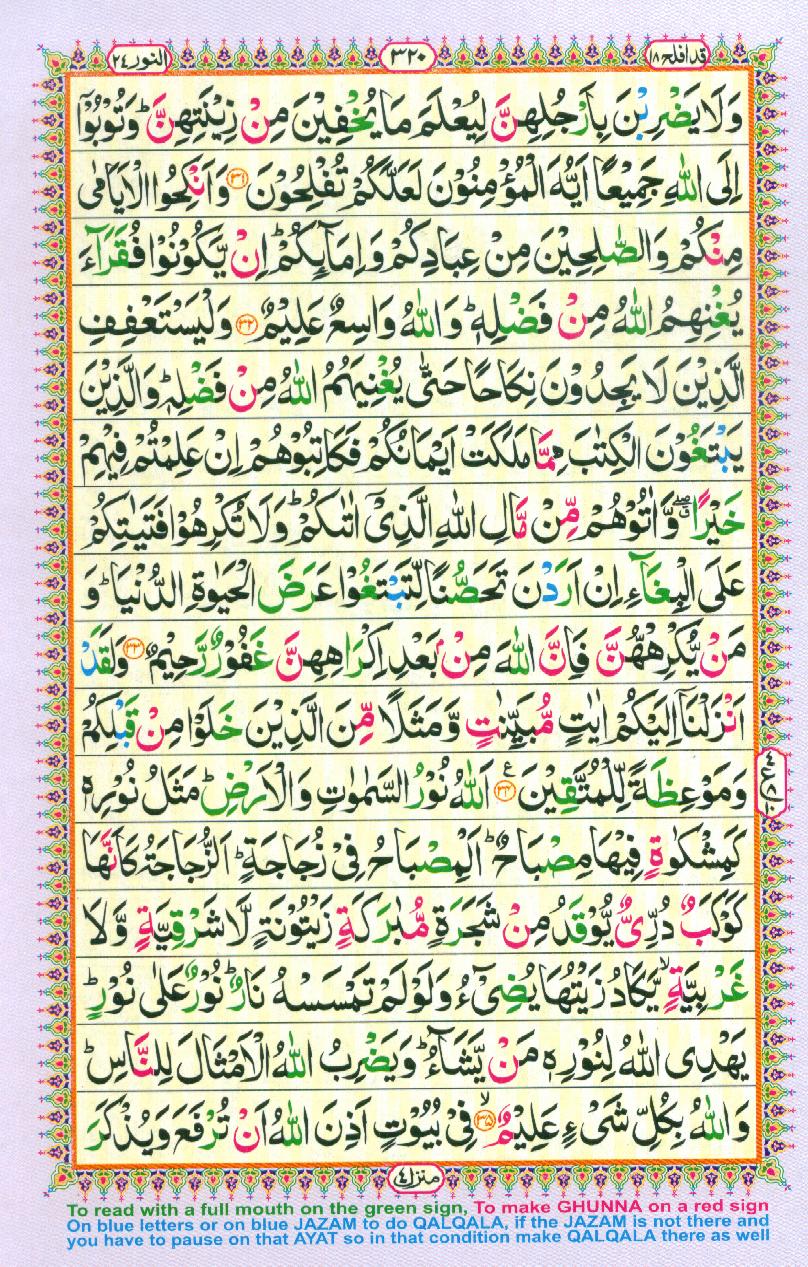 قدافلح ۱۸
۳۲۰
النور ۲۴
وَلَا يَضْرِبْنَ بِاَرْجُلِهِنَّ لِيُعْلَمَ مَا يُخْفِيْنَ مِنْ زِيْنَتِهِنَّ ؕ وَتُوْبُوْۤا
اِلَى اللّٰهِ جَمِيْعًا اَيُّهَ الْمُؤْمِنُوْنَ لَعَلَّكُمْ تُفْلِحُوْنَ ﴿۳۱﴾ وَاَنْكِحُوا الْاَيَامٰى
مِنْكُمْ وَالصّٰلِحِيْنَ مِنْ عِبَادِكُمْ وَاِمَآئِكُمْ ؕ اِنْ يَّكُوْنُوْا فُقَرَآءَ
يُغْنِهِمُ اللّٰهُ مِنْ فَضْلِهٖ ؕ وَاللّٰهُ وَاسِعٌ عَلِيْمٌ ﴿۳۲﴾ وَلْيَسْتَعْفِفِ
الَّذِيْنَ لَا يَجِدُوْنَ نِكَاحًا حَتّٰى يُغْنِيَهُمُ اللّٰهُ مِنْ فَضْلِهٖ ؕ وَالَّذِيْنَ
يَبْتَغُوْنَ الْكِتٰبَ مِمَّا مَلَكَتْ اَيْمَانُكُمْ فَكَاتِبُوْهُمْ اِنْ عَلِمْتُمْ فِيْهِمْ
خَيْرًا ۖق وَّاٰتُوْهُمْ مِّنْ مَّالِ اللّٰهِ الَّذِيْۤ اٰتٰىكُمْ ؕ وَلَا تُكْرِهُوْا فَتَيٰتِكُمْ
عَلَى الْبِغَآءِ اِنْ اَرَدْنَ تَحَصُّنًا لِّتَبْتَغُوْا عَرَضَ الْحَيٰوةِ الدُّنْيَا ؕ وَ
مَنْ يُّكْرِهْهُّنَّ فَاِنَّ اللّٰهَ مِنْۢ بَعْدِ اِكْرَاهِهِنَّ غَفُوْرٌ رَّحِيْمٌ ﴿۳۳﴾ وَلَقَدْ
اَنْزَلْنَاۤ اِلَيْكُمْ اٰيٰتٍ مُّبَيِّنٰتٍ وَّمَثَلًا مِّنَ الَّذِيْنَ خَلَوْا مِنْ قَبْلِكُمْ
وَمَوْعِظَةً لِّلْمُتَّقِيْنَ ﴿۳۴﴾ ع اَللّٰهُ نُوْرُ السَّمٰوٰتِ وَالْاَرْضِ ؕ مَثَلُ نُوْرِهٖ
كَمِشْكٰوةٍ فِيْهَا مِصْبَاحٌ ؕ اَلْمِصْبَاحُ فِيْ زُجَاجَةٍ ؕ اَلزُّجَاجَةُ كَاَنَّهَا
كَوْكَبٌ دُرِّيٌّ يُّوْقَدُ مِنْ شَجَرَةٍ مُّبٰرَكَةٍ زَيْتُوْنَةٍ لَّا شَرْقِيَّةٍ وَّلَا
غَرْبِيَّةٍ ۙ يَّكَادُ زَيْتُهَا يُضِيْٓءُ وَلَوْ لَمْ تَمْسَسْهُ نَارٌ ؕ نُوْرٌ عَلٰى نُوْرٍ ؕ
يَهْدِي اللّٰهُ لِنُوْرِهٖ مَنْ يَّشَآءُ ؕ وَيَضْرِبُ اللّٰهُ الْاَمْثَالَ لِلنَّاسِ ؕ
وَاللّٰهُ بِكُلِّ شَيْءٍ عَلِيْمٌ ﴿۳۵﴾ ۙ فِيْ بُيُوْتٍ اَذِنَ اللّٰهُ اَنْ تُرْفَعَ وَيُذْكَرَ
منزل ۴
To read with a full mouth on the green sign, To make GHUNNA on a red sign
On blue letters or on blue JAZAM to do QALQALA, if the JAZAM is not there and
you have to pause on that AYAT so in that condition make QALQALA there as well